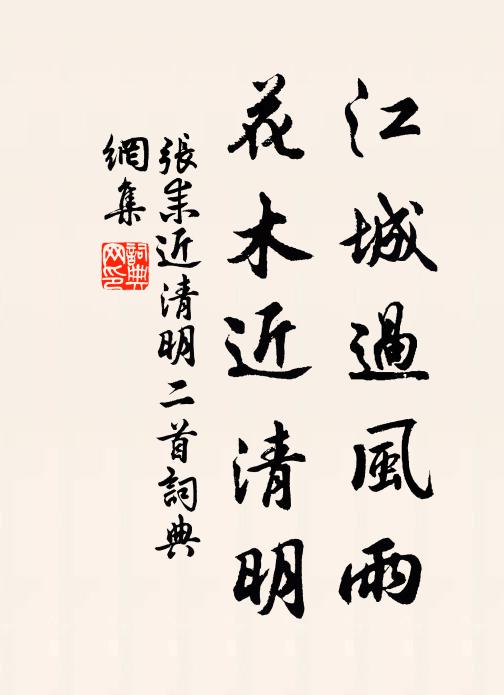 江城過風雨
花木近清明
張耒近清明二首詞典
網集
詞典
网印